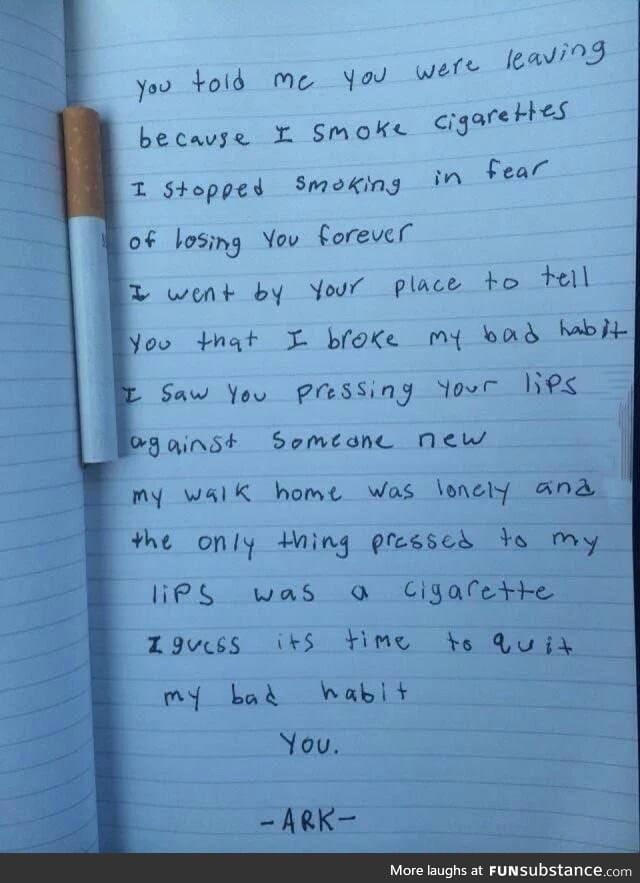 you told me you were leaving
because I smoke cigarettes
I stopped smoking in fear
of losing you forever
I went by your place to tell
you that I broke my bad habit
I saw you pressing your lips
against someone new
my walk home was lonely and
the only thing pressed to my
lips was a cigarette
I guess its time to quit
my bad habit
You.
-ARK-
More laughs at FUNsubstance.com